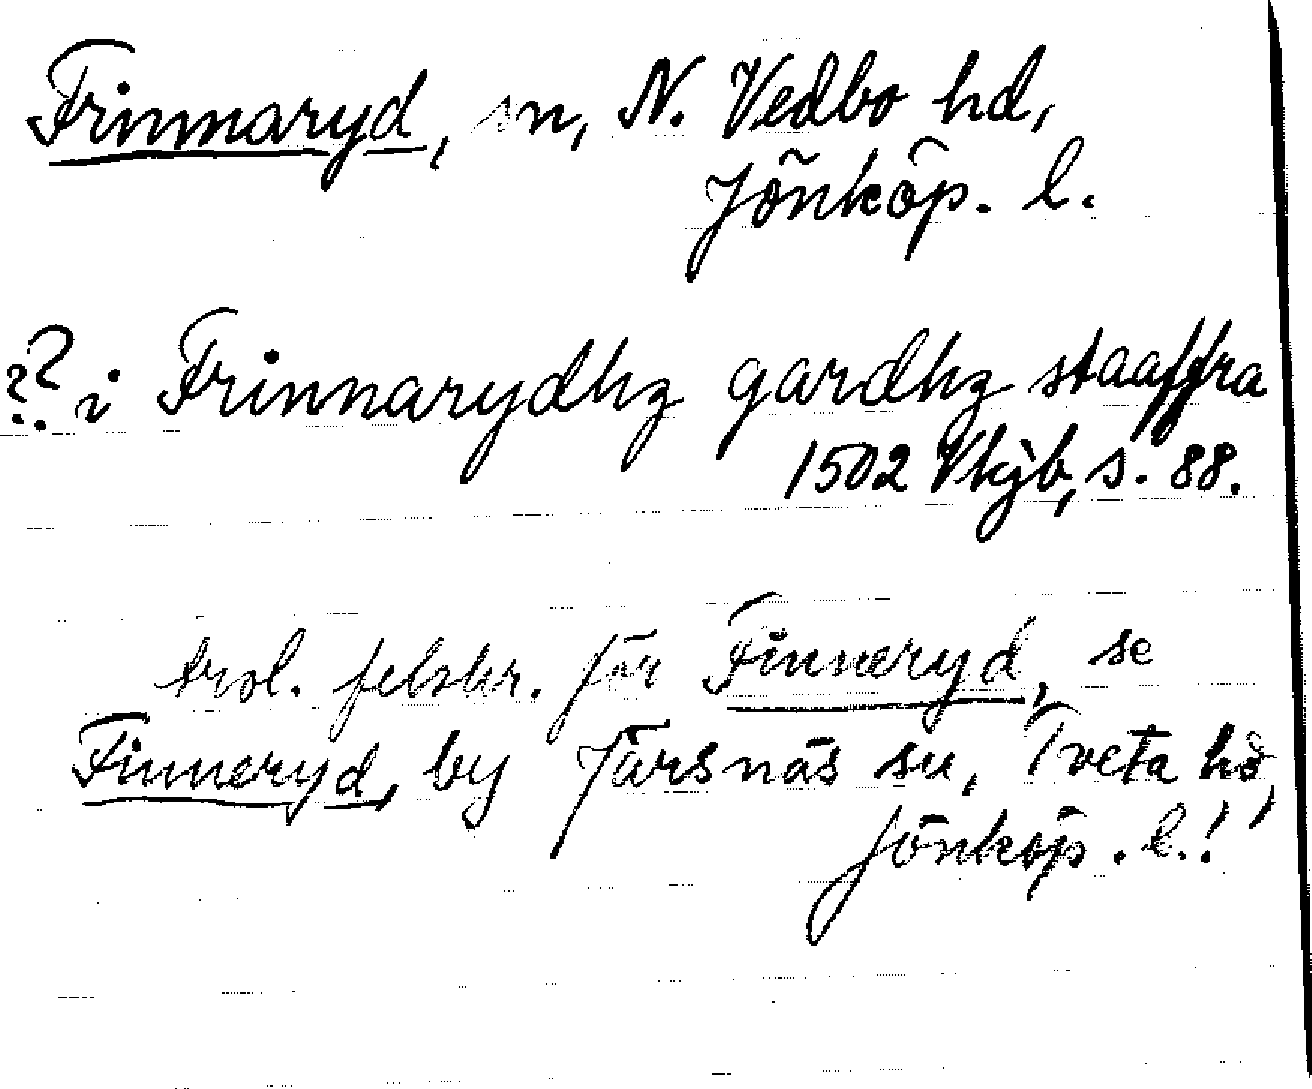 Frinnaryd, sn, N. Vedbo hd,
Jönköp. l.
?? i Frinnarydhz gardhz staaffra
1502 Vkjb, s. 88.
trol. felskr. för Finneryd, se
Finneryd, by Järsnäs sn, Tveta hd,
Jönköp. l.!